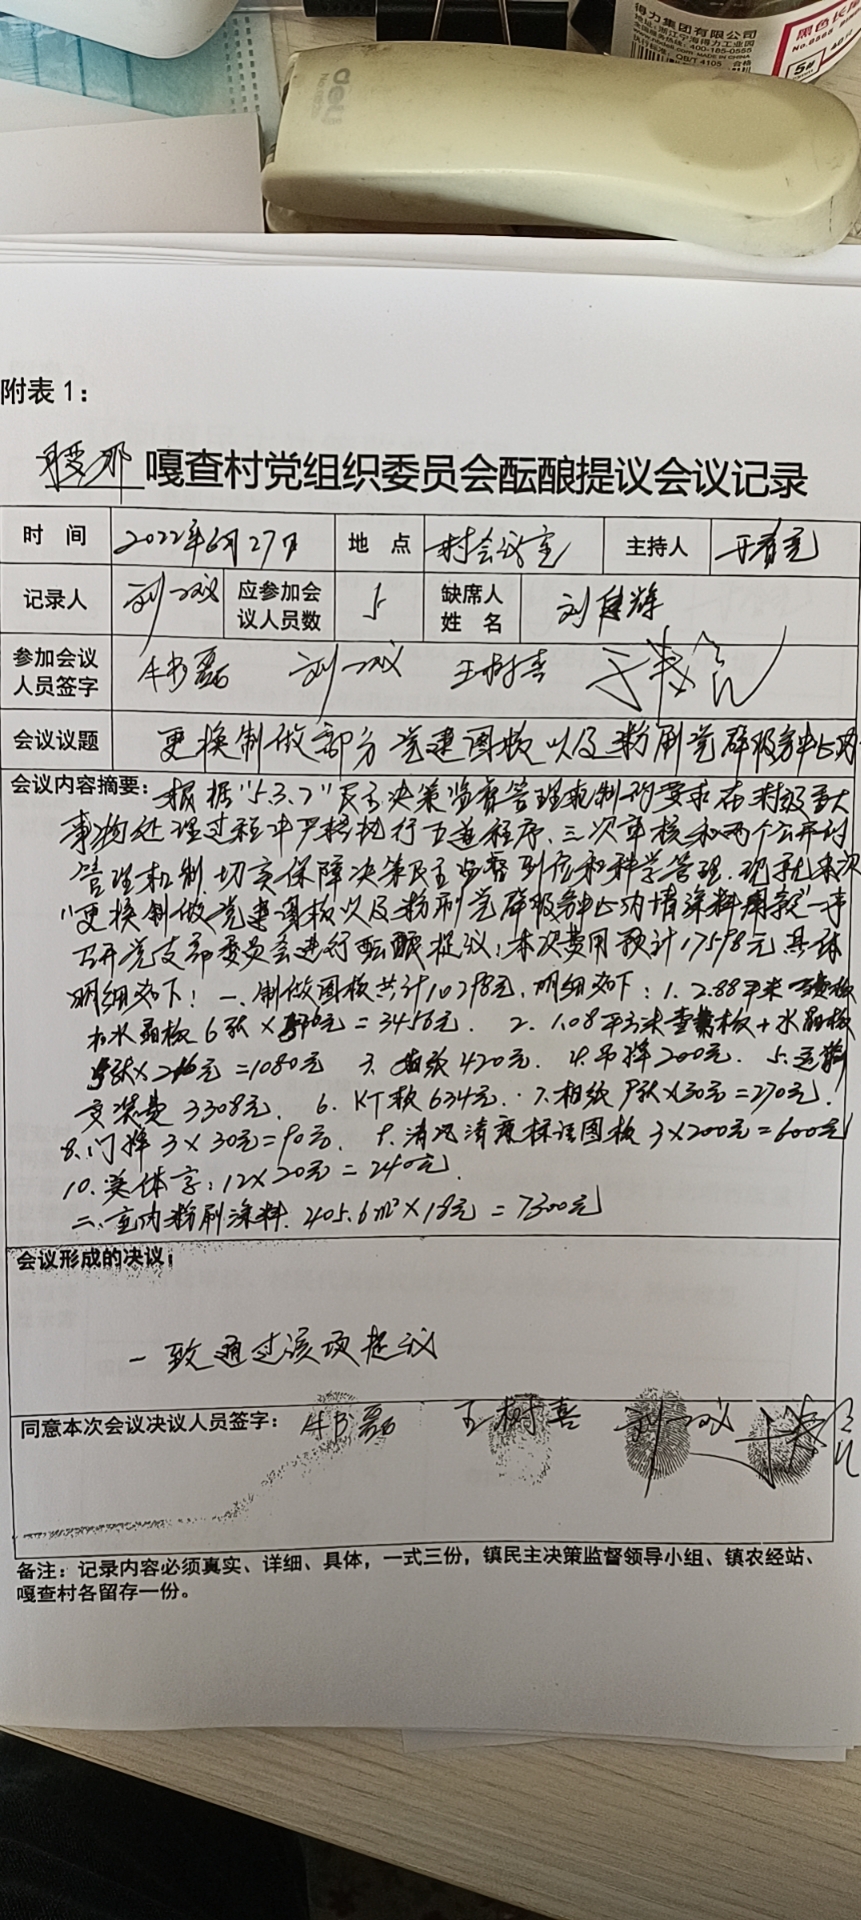 得力集团有限公司
地址:浙江宁海得力工业园
全国服务热线:400-185-0555
MADE IN CHINA
执行标准:QB/T 4105 合格
黑色长尾
5#
deli
附表 1：
嘎查村党组织委员会酝酿提议会议记录
时 间 2022年6月27日 地 点 村会议室 主持人
记录人 刘 应参加会议人员数 5 缺席人姓 名 刘 辉
参加会议人员签字 牛书磊 刘 王树喜 于
会议议题 更换制做部分党建图板以及粉刷党群服务中心内
会议内容摘要: 根据“5.3.2”民主决策监督管理机制的要求在村级重大
事物处理过程中严格执行五道程序、三次审核和两个公开的
管理机制,切实保障决策民主监督到位和科学管理.现就本次
“更换制做党建图板以及粉刷党群服务中心内墙涂料用款”一事
召开党支部委员会进行酝酿提议:本次费用预计17598元具体
明细如下: 一、制做图板共计10298元,明细如下: 1. 2.88平米 板
水晶板 6张×576元=3456元. 2. 1.08平方米 板+水晶板
5张×216元=1080元 3. 420元. 4.吊牌200元. 5.运输
安装费 3308元. 6. KT板 634元. 7.相纸 9张×30元=270元.
8.门牌 3×30元=90元. 9.清况清廉标语图板 3×200元=600元
10.美体字:12×20元=240元.
二、室内粉刷涂料.405.6m²×18元=7300元
会议形成的决议:
一致通过该项提议
同意本次会议决议人员签字: 牛书磊 王树喜 刘 于
备注：记录内容必须真实、详细、具体，一式三份，镇民主决策监督领导小组、镇农经站、
嘎查村各留存一份。